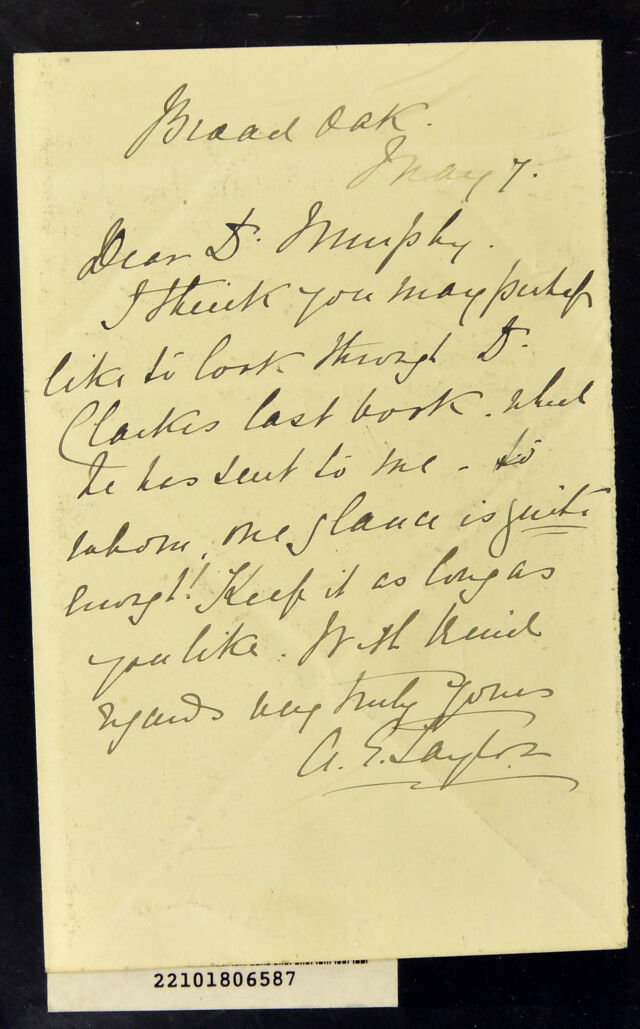 Broad Oak.
May 7.
Dear Dr. Murphy.
I think you may perhaps
like to look through Dr.
Clarkes last book. which
he has sent to me - to
whom, one glance is quite
enough! Keep it as long as
you like. With kind
regards very truly yours
A. E. Taylor
22101806587